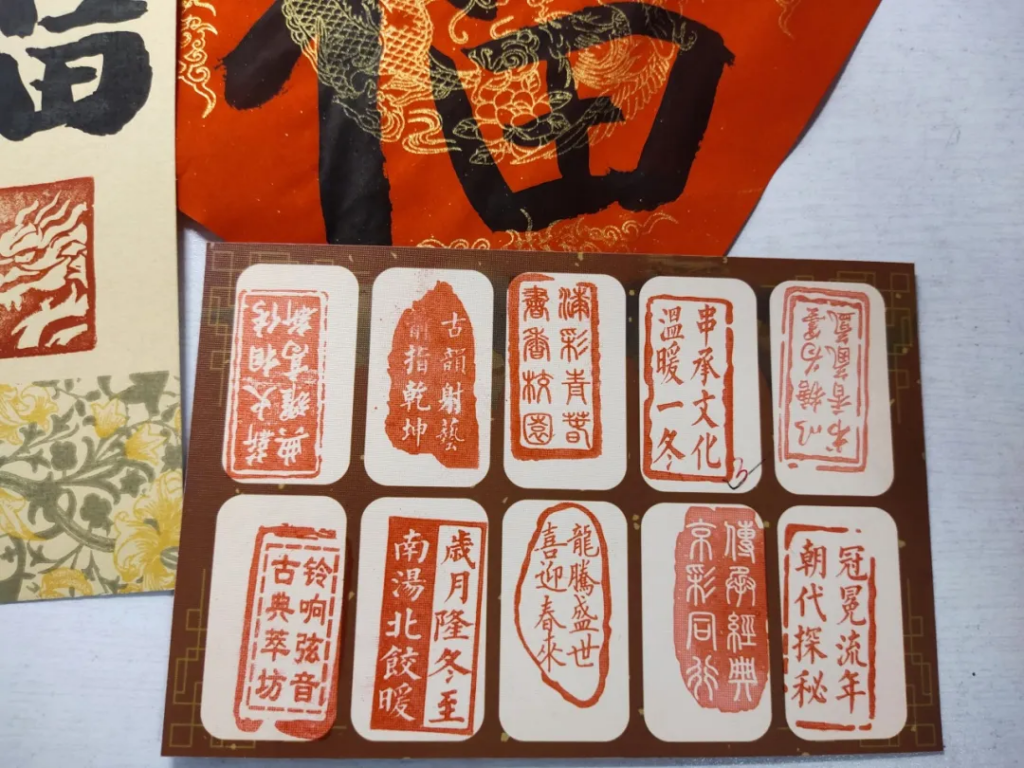 福
福
薪火相传
典耀高新
古韻射藝
箭指乾坤
彩青春
書香校園
串承文化
溫暖一冬
铃响弦音
古典萃坊
歲月隆冬至
南湯北餃暖
龍騰盛世
喜迎春來
傳承經典
京彩同行
冠冕流年
朝代探秘